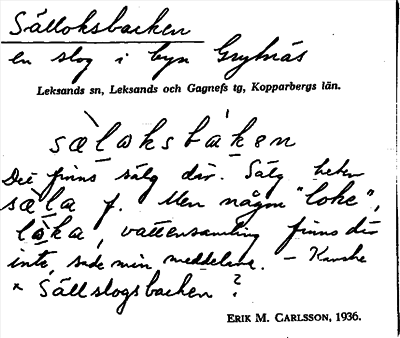 Sälloksbacken
en slog i byn Grytnäs
Leksands sn, Leksands och Gagnefs tg, Kopparbergs län.
sæ̀lɷksbàken
Det finns sälg där. Sälg heter
sæ̀la f. Men någon "loke",
lɷ̀ka, vattensamling finns där
inte, sade min meddelare. – Kanske
* Sällslogsbacken?
ERIK M. CARLSSON, 1936.